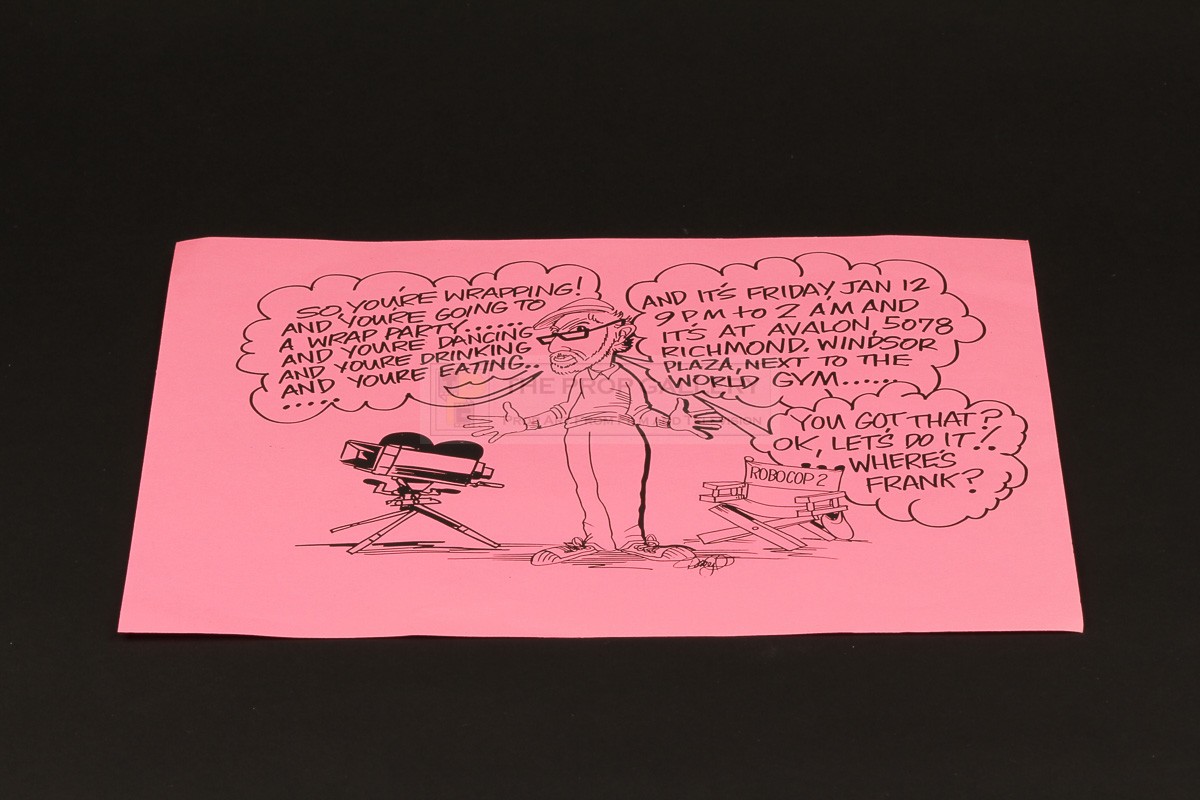 SO, YOU'RE WRAPPING!
AND YOU'RE GOING TO
A WRAP PARTY......
AND YOU'RE DANCING
AND YOU'RE DRINKING
AND YOU'RE EATING..
.....
AND IT'S FRIDAY, JAN 12
9 PM to 2 AM AND
IT'S AT AVALON, 5078
RICHMOND. WINDSOR
PLAZA, NEXT TO THE
WORLD GYM.....
YOU GOT THAT?
OK, LET'S DO IT!..
...WHERE'S
FRANK?
ROBOCOP 2
THE PROP GALLERY